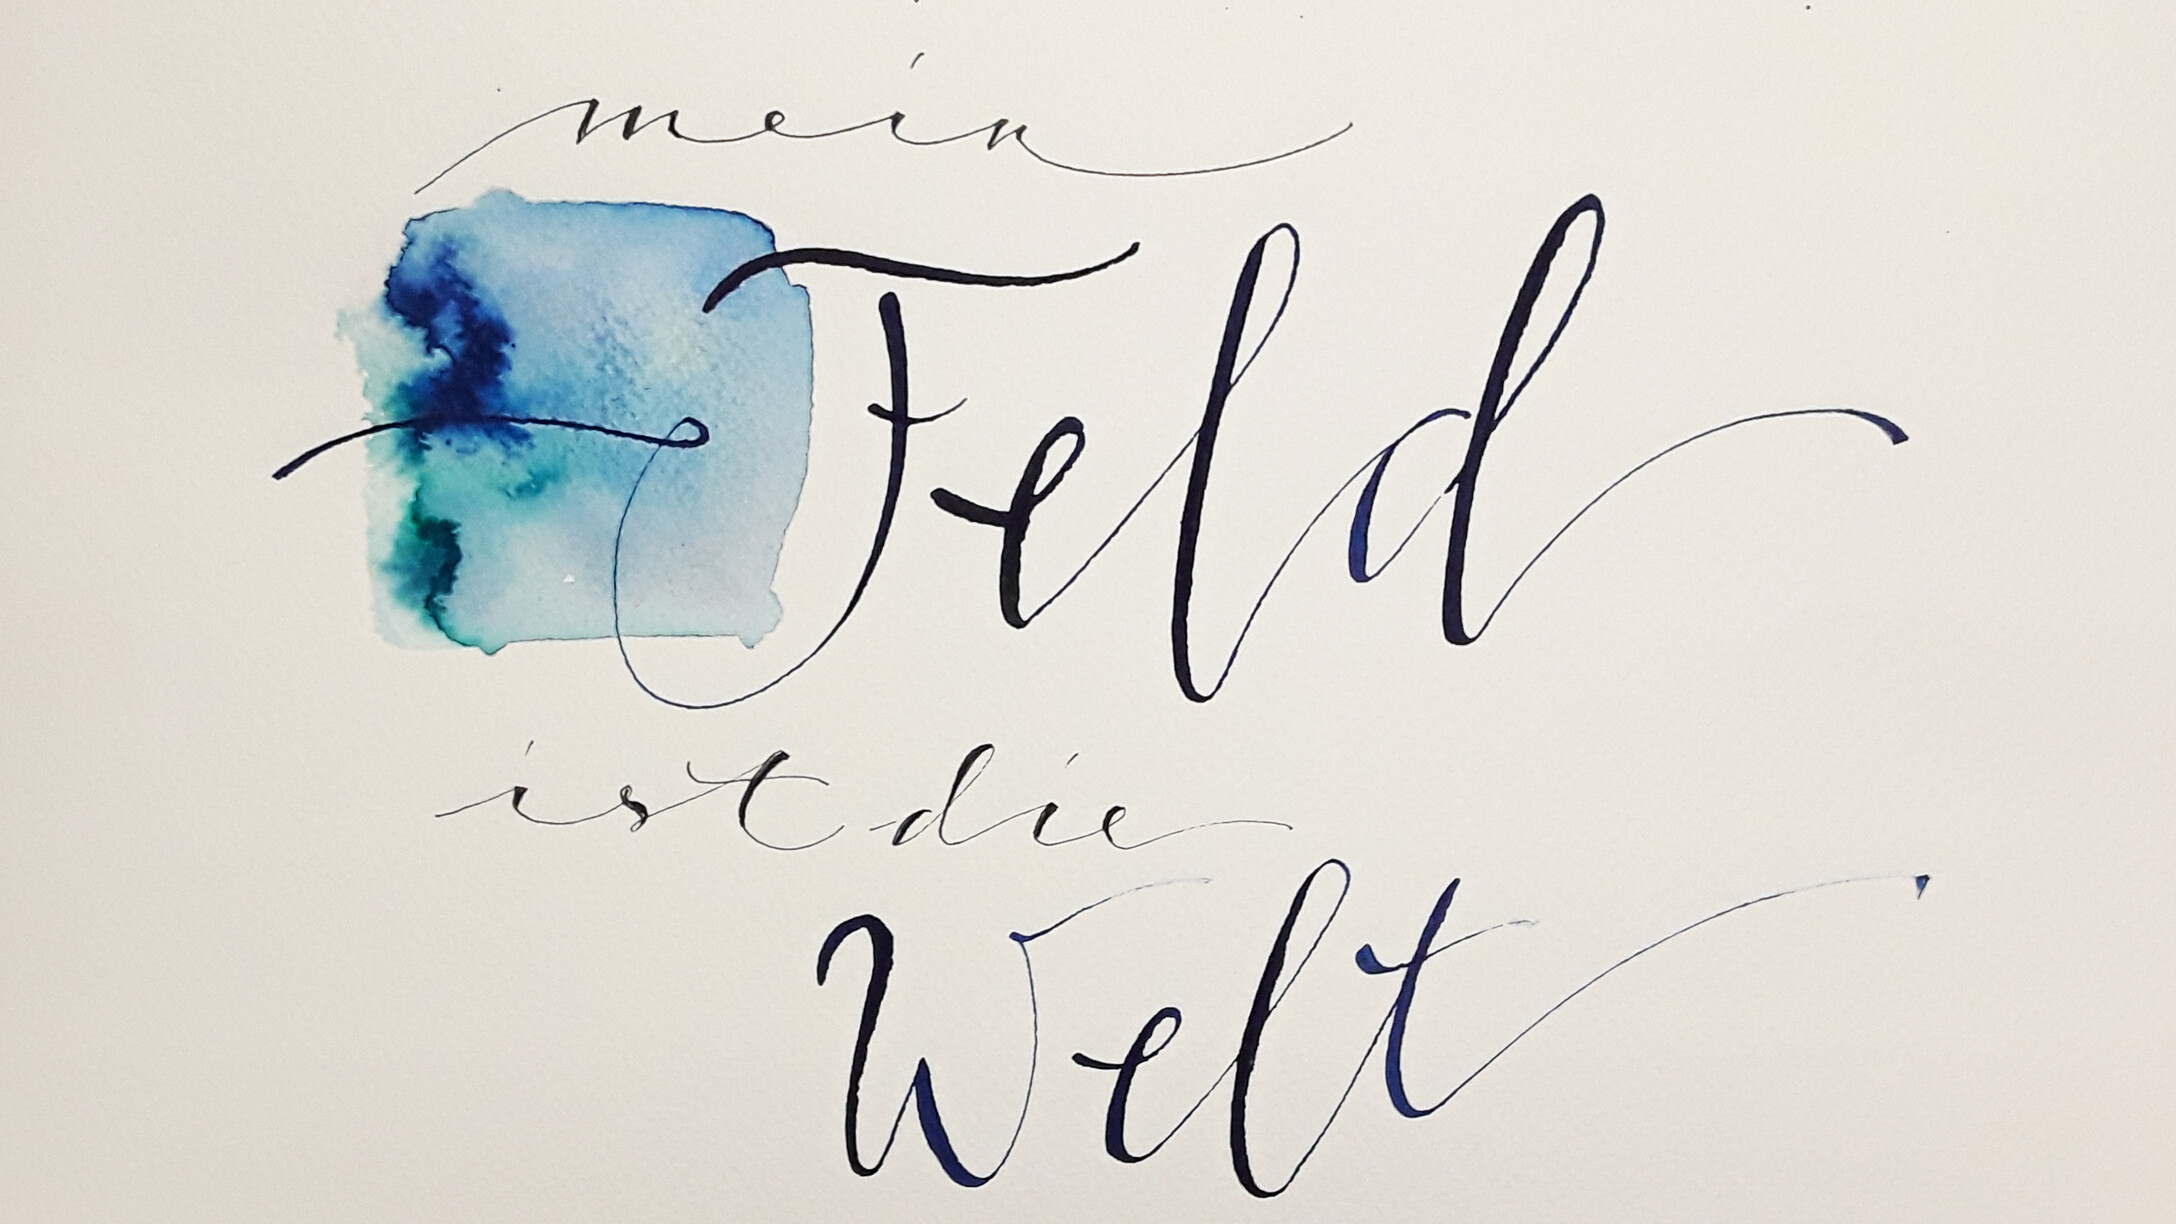 mein
Feld
ist die
Welt